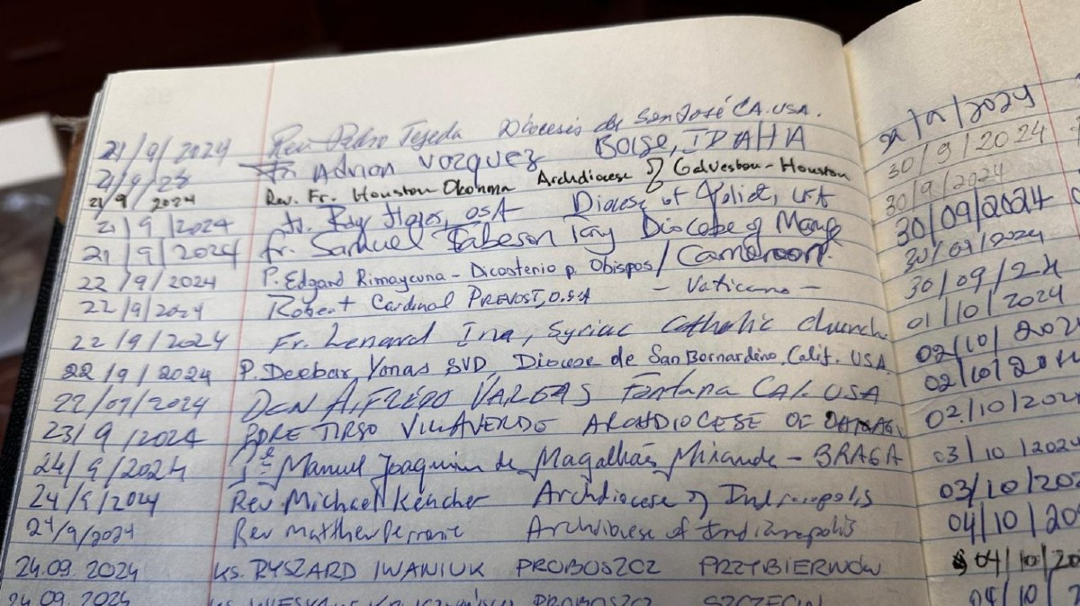 21/9/2024 Rev Pedro Tejeda Diócesis de San José CA. USA.
21/9/23 Fr. Adrian Vazquez BOISE, IDAHA
21/9/2024 Rev. Fr. Houston Okonma Archdiocese of Galveston-Houston
21/9/2024 Fr. Ray Flores, OSA Diocese of Joliet, USA
21/9/2024 Fr. Samuel Tabeson Diocese of
22/9/2024 P. Edgard Rimaycuna - Dicasterio p. Obispos / Cameroon.
22/9/2024 Robert Cardinal PREVOST, O.S.A - Vaticano -
22/9/2024 Fr. Lenard Ina, Syriac Catholic church
22/9/2024 P. Deebar Yonas SVD, Diocese de San Bernardino, Calif. USA
22/09/2024 DCN ALFREDO VARGAS Fontana CAL. USA
23/9/2024 PDRE TIRSO VILLAVERDE ARCHDIOCESE OF
24/9/2024 Manuel Joaquim de Magalhães Miranda - BRAGA
24/9/2024 Rev. Michael Keucher Archdiocese of Indianapolis
24/9/2024 Rev Matthew Perronie Archdiocese of Indianapolis
24.09.2024 KS. RYSZARD IWANIUK PROBOSZCZ PRZYBIERNÓW
24.09.2024 PROBOSZCZ SZCZECIN
30/9/2024
30/9/2024
30/09/2024
30/09/2024
30/09/24
01/10/2024
02/10/202
02/10/20
02/10/202
03/10/2024
03/10/202
04/10/20
04/10/20
04/10/2